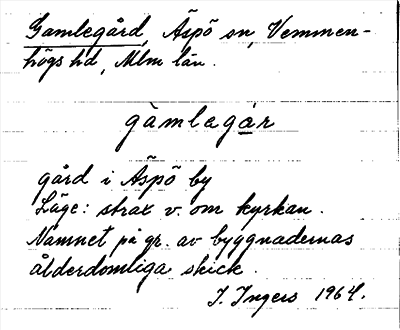 Gamlegård, Äspö sn, Vemmen-
högs hd, Mlm län.
gàmlegár
gård i Äspö by
Läge: strax v. om kyrkan.
Namnet på gr. av byggnadernas
ålderdomliga skick.
I. Ingers 1964.